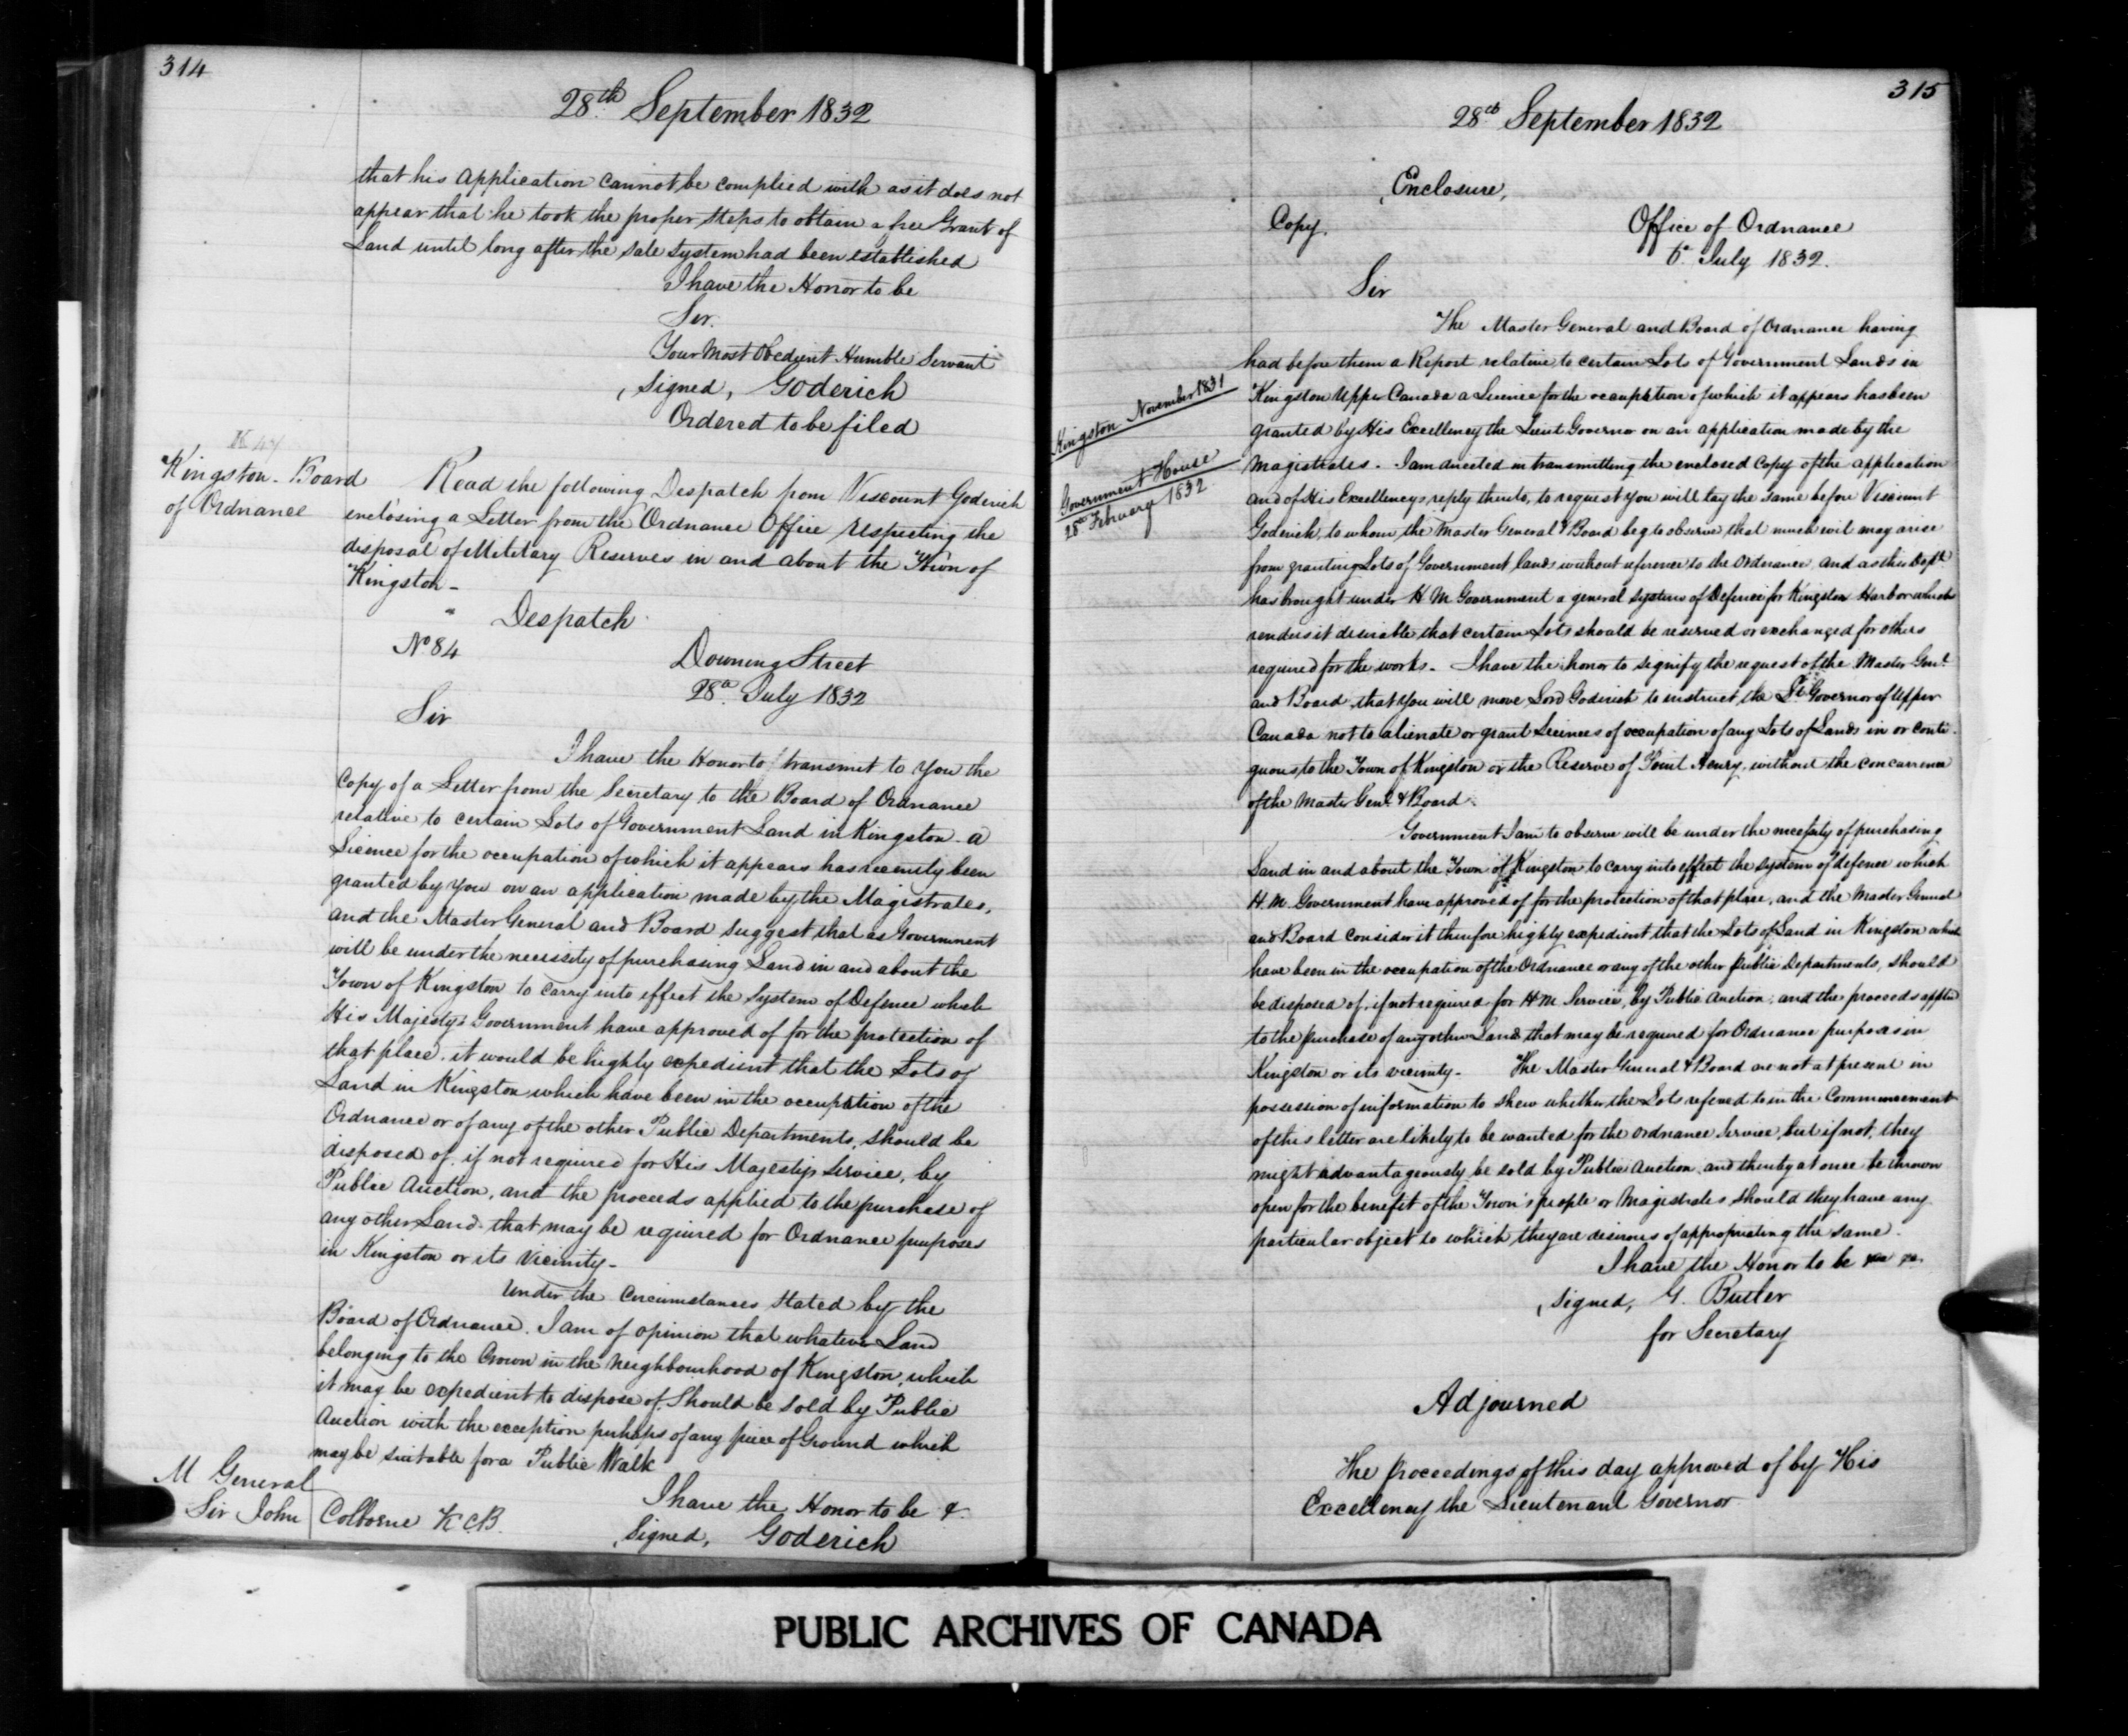 314
28th September 1832
that his Application cannot be complied with as it does not
appear that he took the proper steps to obtain a free Grant of
Land until long after the sale system had been established
I have the Honor to be
Sir.
Your Most Obedient Humble Servant
(Signed, Goderich
Ordered to be filed
Kingston - Board
of Ordnance
Read the following Despatch from Viscount Goderich
enclosing a Letter from the Ordnance Office respecting the
disposal of Military Reserves in and about the Town of
Kingston -
Despatch
No. 84
Downing Street
28th July 1832
Sir
I have the Honor to transmit to you the
Copy of a Letter from the Secretary to the Board of Ordnance
relative to certain Lots of Government Land in Kingston - a
Licence for the occupation of which it appears has recently been
granted by you on an application made by the Magistrates,
and the Master General and Board suggest that as Government
will be under the necessity of purchasing Land in and about the
Town of Kingston to carry into effect the System of Defence which
His Majestys Government have approved of for the protection of
that place. it would be highly expedient that the Lots of
Land in Kingston which have been in the occupation of the
Ordnance or of any of the other Public Departments, should be
disposed of, if not required for His Majestys Service, by
Public Auction, and the proceeds applied to the purchase of
any other Land that may be required for Ordnance purposes
in Kingston or its Vicinity -
Under the Circumstances stated by the
Board of Ordnance. I am of opinion that whatever Land
belonging to the Crown in the Neighbourhood of Kingston, which
it may be expedient to dispose of Should be sold by Public
Auction with the exception perhaps of any piece of Ground which
may be suitable for a Public Walk
I have the Honor to be &.
(Signed, Goderich
M General
Sir John Colborne K.C.B.
315
28th September 1832
(Enclosure,
Copy.
Office of Ordnance
6th July 1832.
Sir
The Master General and Board of Ordnance having
had before them a Report relative to certain Lots of Government Lands in
Kingston November 1831
Kingston Upper Canada a Licence for the occupation of which it appears has been
granted by His Excellency the Lieut Governor on an application made by the
Government House
28th February 1832
Magistrates. I am directed in transmitting the enclosed Copy of the application
and of His Excellencys reply thereto, to request you will lay the same before Viscount
Goderich, to whom, the Master General & Board beg to observe that much evil may arise
from granting Lots of Government lands without reference to the Ordnance, and as this Dept
has brought under H M Government a general system of Defence for Kingston Harbor which
renders it desirable that certain Lots should be reserved or exchanged for others
required for the works. I have the honor to signify the request of the Master Genl.
and Board, that you will move Lord Goderich to instruct the Lt. Governor of Upper
Canada not to alienate or grant Licences of occupation of any Lots of Lands in or conti-
guous to the Town of Kingston or the Reserve of Point Henry, without the concurrence
of the Master Genl. & Board.
Government I am to observe will be under the necessity of purchasing
Land in and about the Town of Kingston to carry into effect the system of defence which
H. M. Government have approved of for the protection of that place, and the Master General
and Board consider it therefore highly expedient that the Lots of Land in Kingston which
have been in the occupation of the Ordnance or any of the other Public Departments, should
be disposed of, if not required for H M Service, by Public Auction, and the proceeds applied
to the purchase of any other Lands that may be required for Ordnance purposes in
Kingston or its vicinity - The Master General & Board are not at present in
possession of information to shew whether the Lots referred to in the Commencement
of this letter are likely to be wanted for the Ordnance Service, but if not, they
might advantageously be sold by Public Auction and thereby at once be thrown
open for the benefit of the Town's people or Magistrates should they have any
particular object to which they are desirous of appropriating the same.
I have the Honor to be
(signed, G. Butler
for Secretary
Adjourned
The proceedings of this day approved of by His
Excellency the Lieutenant Governor
PUBLIC ARCHIVES OF CANADA